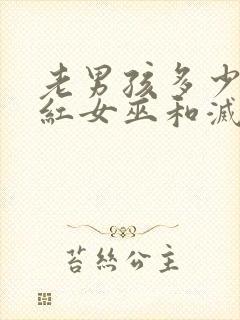 老男孩多少
紅女巫和滅
苔絲公主